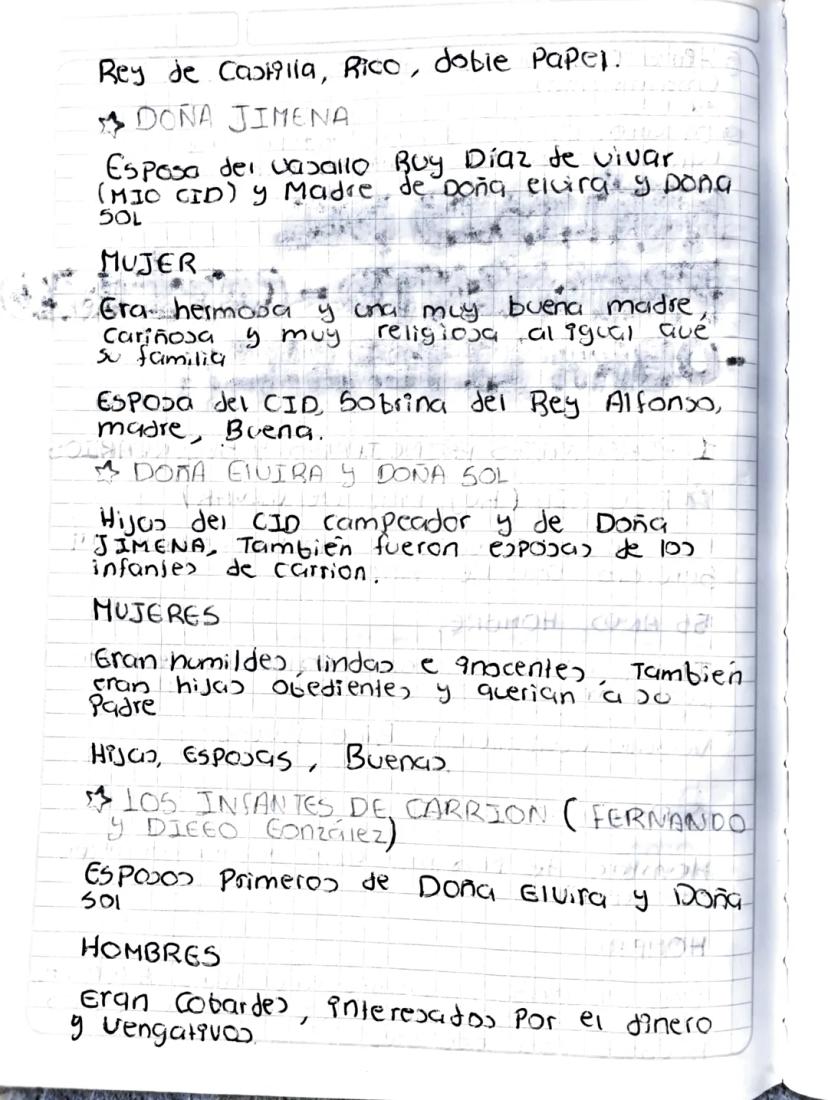 Rey de Castilla, Rico, doble Papel.
☆ DOÑA JIMENA
Esposa del vasallo Ruy Díaz de vivar
(MIO CID) y Madre de Doña elvira y Doña
SOL
MUJER
Era hermosa y una muy buena madre,
cariñosa y muy religiosa al igual que
su familia
Esposa del CID, Sobrina del Rey Alfonso,
madre, Buena.
☆ DOÑA ElVIRA y DOÑA SOL
Hijas del CID campeador y de Doña
JIMENA, También fueron esposas de los
infantes de carrion.
MUJERES
Eran humildes, lindas e inocentes, También
eran hijas obedientes y querian a su
Padre
Hijas, ESPOSAS, Buenas.
☆ LOS INFANTES DE CARRION (FERNANDO
y DIEGO González)
ESPOSOS Primeros de Doña Elvira y Doña
Sol
HOMBRES
Eran Cobardes, interesados Por el dinero
y vengativos.